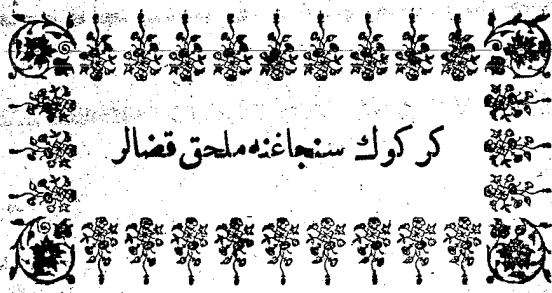 كركوك سنجاغنه ملحق قضالر